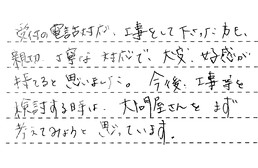 受付の電話対応が、工事をして下さった方も、
親切、丁寧な対応で、大変、好感が
持てると思いました。今後、工事等を
検討する時は、大間屋さんをまず
考えてみようと思っています。